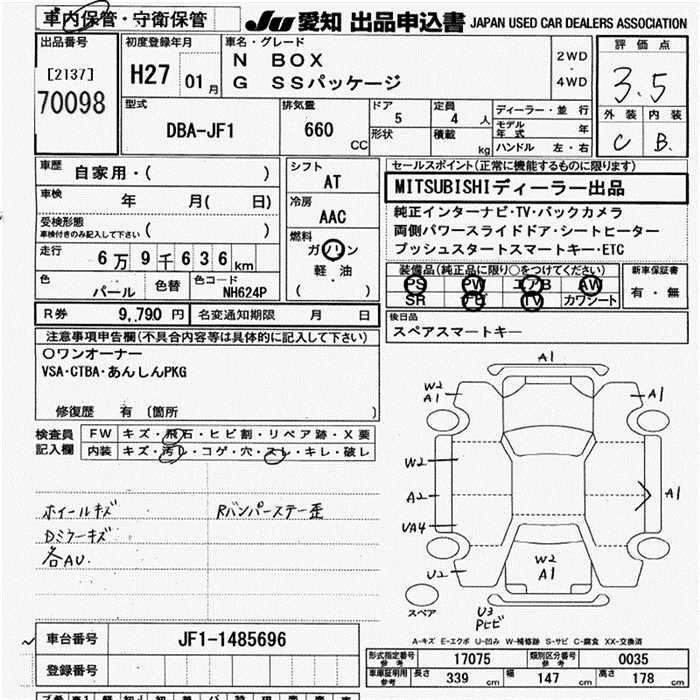 車内保管・守衛保管
JU 愛知 出品申込書 JAPAN USED CAR DEALERS ASSOCIATION
出品番号
[2137]
70098
初度登録年月
H27 01月
車名・グレード
N BOX
G SSパッケージ
2WD
・
4WD
評価点
3.5
外装 内装
C B
型式
DBA-JF1
排気量
660 CC
ドア
5
形状
定員
4 人
積載
kg
ディーラー・並行
モデル年式 年
ハンドル 左・右
車歴
自家用・( )
車検
年 月( 日)
受検形態
車検付きのみ記入して下さい ( )
走行
6万9千636km
色
パール
色替
色コード
NH624P
シフト
AT
冷房
AAC
燃料
ガソリン
軽・油
( )
セールスポイント(正常に機能するものに限ります)
MITSUBISHIディーラー出品
純正インターナビ・TV・バックカメラ
両側パワースライドドア・シートヒーター
プッシュスタートスマートキー・ETC
装備品(純正品に限り○をつけてください)
PS PW エアB AW
SR ナビ TV カワシート
新車保証書
有・無
R券 9,790 円
名変通知期限 月 日
後日品
スペアスマートキー
注意事項申告欄(不具合内容等は具体的に記入して下さい)
○ワンオーナー
VSA・CTBA・あんしんPKG
修復歴 有 〔箇所 〕
検査員
記入欄
FW キズ・飛石・ヒビ割・リペア跡・X要
内装 キズ・汚レ・コゲ・穴・スレ・キレ・破レ
ホイールキズ
Rバンパーステー歪
Dミラーキズ
各AU.
A1
W2
A1
A1
W2
A2
A1
VA4
U2
W2
A1
スペア
U3
Pヒビ
A-キズ E-エクボ U-凹み W-補修跡 S-サビ C-腐食 XX-交換済
車台番号 JF1-1485696
登録番号
形式指定番号
参考
17075
類別区分番号
参考
0035
車庫証明用
参考
長さ 339 cm
幅 147 cm
高さ 178 cm